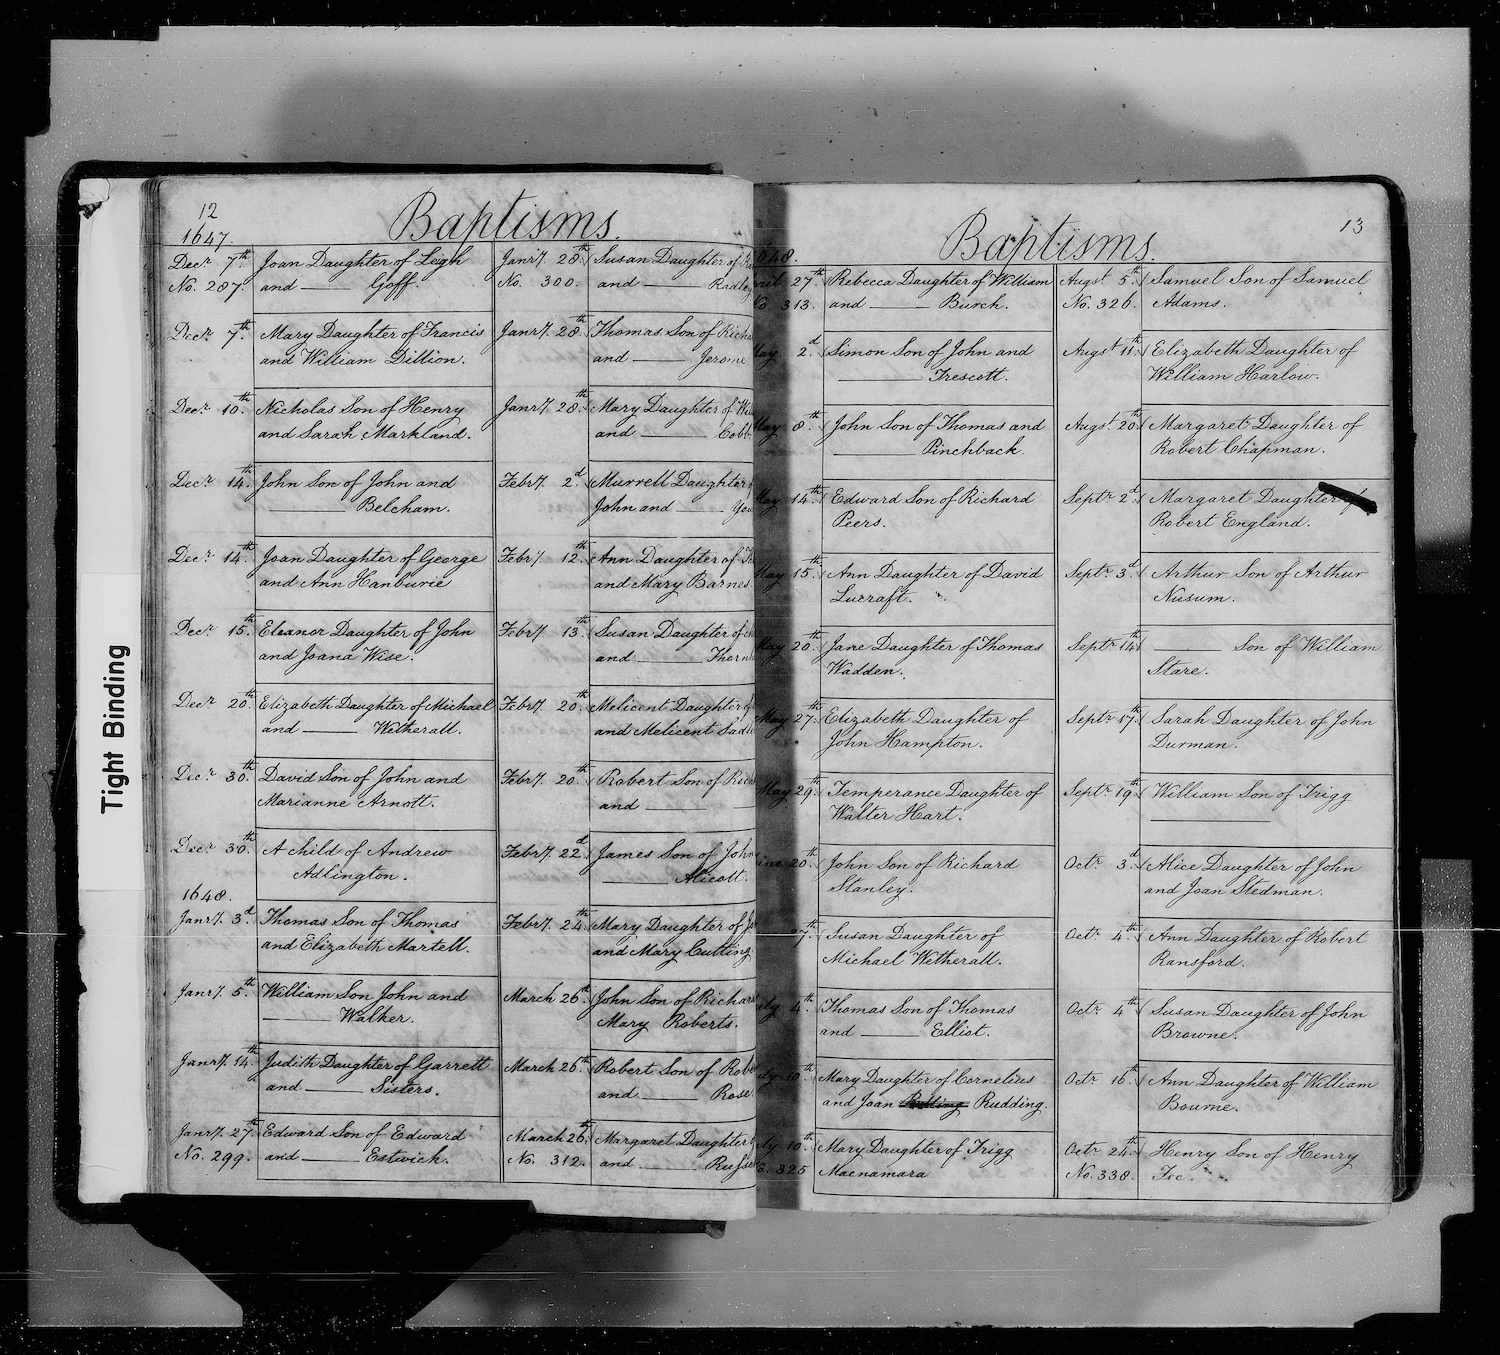 Tight Binding
12
Baptisms.
1647.
Decr. 7th Joan Daughter of Leigh
No. 287. and —— Goff.
Decr. 7th Mary Daughter of Francis
and William Dillion.
Decr. 10th Nicholas Son of Henry
and Sarah Markland.
Decr. 14th John Son of John and
—— Belcham.
Decr. 14th Joan Daughter of George
and Ann Hanburie
Decr. 15th Eleanor Daughter of John
and Joana Wise.
Decr. 20th Elizabeth Daughter of Michael
and —— Witherall.
Decr. 30th David Son of John and
Marianne Arnott.
Decr. 30th A child of Andrew
Adlington.
1648.
Janry. 3d Thomas Son of Thomas
and Elizabeth Martell.
Janry. 5th William Son John and
—— Walker.
Janry. 14th Judith Daughter of Garrett
and —— Sisters.
Janry. 27th Edward Son of Edward
No. 299. and —— Estwick.
Janry. 28th Susan Daughter of
No. 300. and ——
Janry. 28th Thomas Son of
and —— Jerome
Janry. 28th Mary Daughter of
and —— Cobb
Febry. 2d Murrell Daughter
John and ——
Febry. 12th Ann Daughter of
and Mary Barnes
Febry. 13th Susan Daughter of
and ——
Febry. 20th Melicent Daughter of
and Melicent
Febry. 20th Robert Son of
and ——
Febry. 22d James Son of John
—— Alicott.
Febry. 24th Mary Daughter of
and Mary Cutting
March 26th John Son of Richard
Mary Roberts.
March 26th Robert Son of
and —— Rose
March 26th Margaret Daughter
No. 312. and ——
13
Baptisms.
27th Rebecca Daughter of William
313. and —— Burch.
May 2d Simon Son of John and
—— Trescott.
May 8th John Son of Thomas and
—— Pinchback.
May 14th Edward Son of Richard
Peers.
May 15th Ann Daughter of David
Lucraft.
May 20th Jane Daughter of Thomas
Wadden.
May 27th Elizabeth Daughter of
John Hampton.
May 29th Temperance Daughter of
Walter Hart.
20th John Son of Richard
Stanley.
27th Susan Daughter of
Michael Witherall.
4th Thomas Son of Thomas
and —— Elliot.
10th Mary Daughter of Cornelius
and Joan Rudding.
10th Mary Daughter of Trigg
325 Macnamara
Augst 5th Samuel Son of Samuel
No. 326. Adams.
Augst 11th Elizabeth Daughter of
William Harlow.
Augst 20th Margaret Daughter of
Robert Chapman.
Septr 2d Margaret Daughter of
Robert England.
Septr 3d Arthur Son of Arthur
Nusum.
Septr 14th —— Son of William
Stare.
Septr 17th Sarah Daughter of John
Durman.
Septr 19th William Son of Trigg
——
Octr 3d Alice Daughter of John
and Joan Stedman.
Octr 4th Ann Daughter of Robert
Ransford.
Octr 4th Susan Daughter of John
Browne.
Octr 16th Ann Daughter of William
Bourne.
Octr 24th Henry Son of Henry
No. 338.